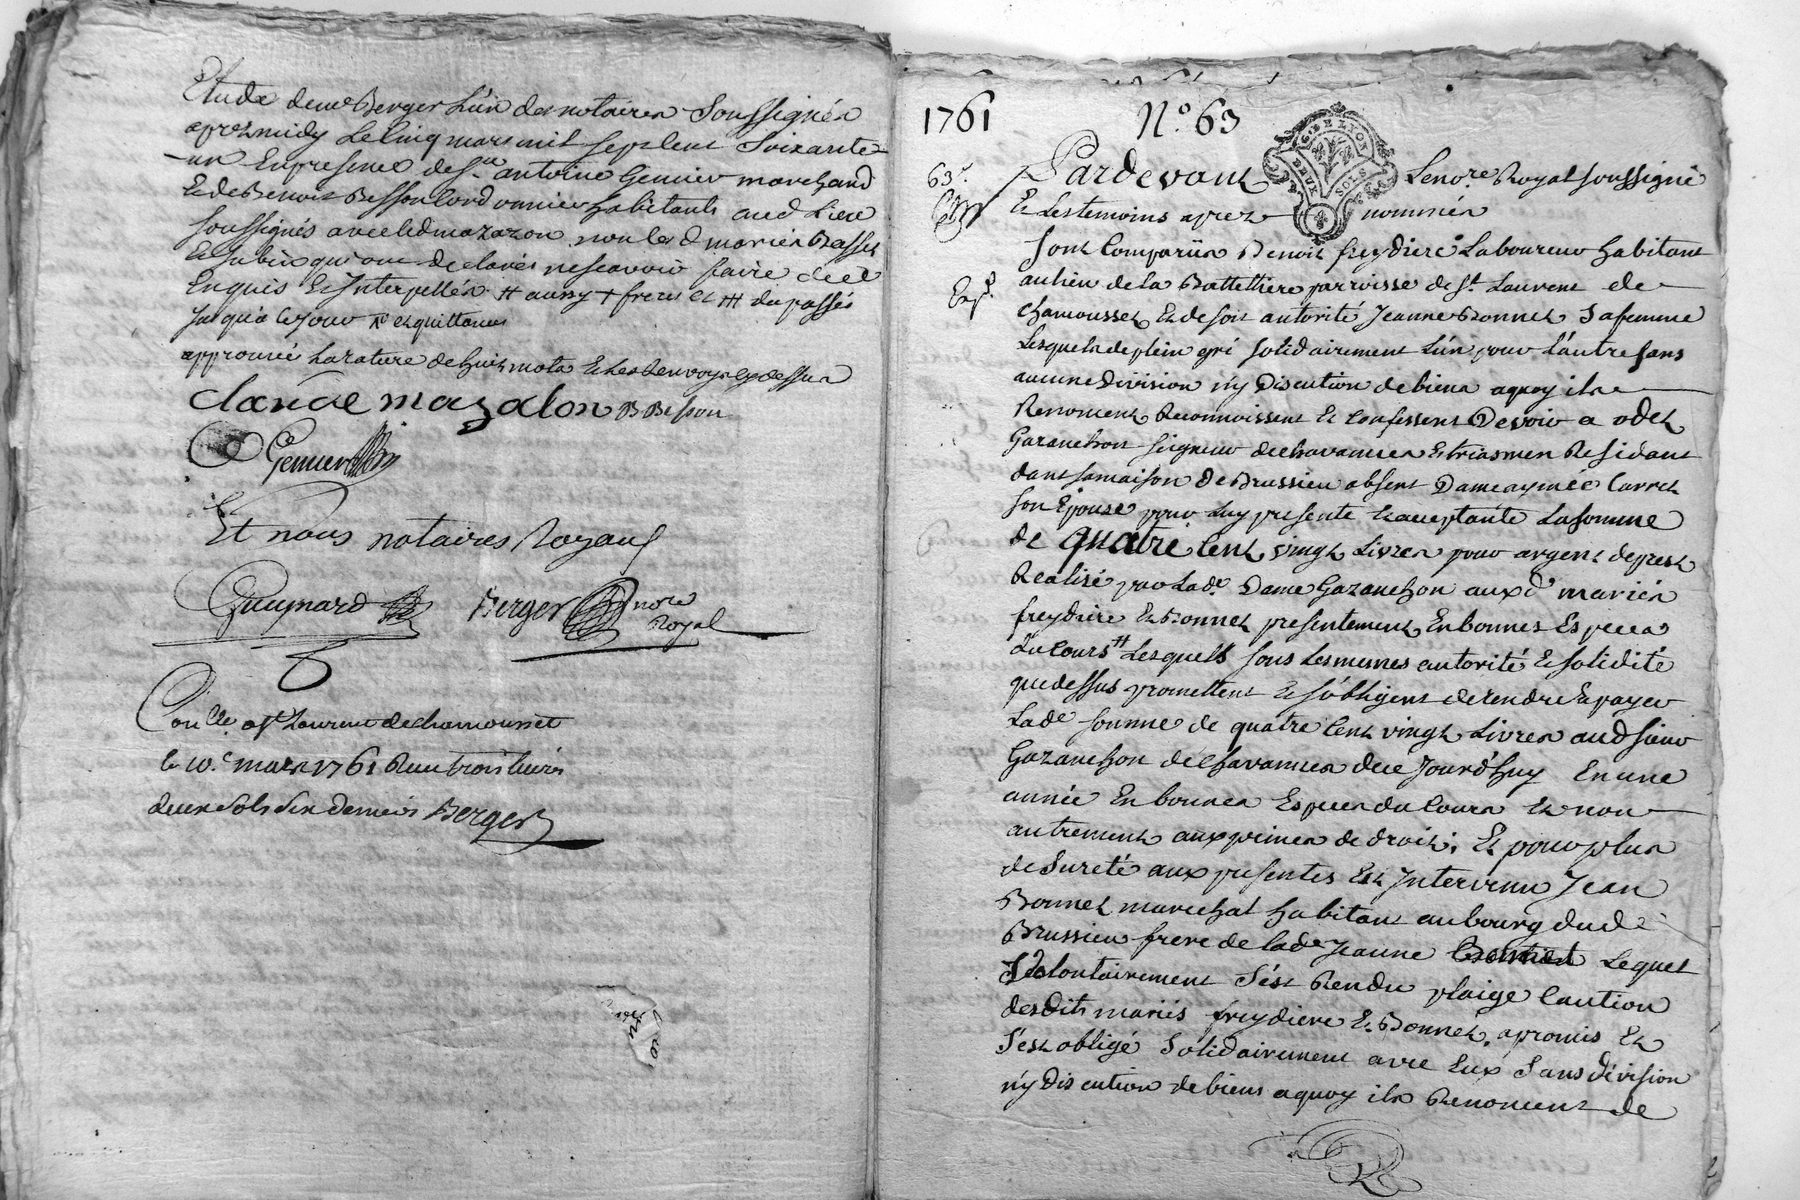 Etude de me Berger L'un des notaires Soussignés
apres midy Le Cinq mars mil sept Cent Soixante
un En presence de sr. antoine Genier marchand
Et de Benoit Besson Cordonnier habitants aud Lieu
soussignés avec led mazazon non les d mariés
Et qui ont declarés ne scavoir faire de ce
Enquis Et Interpellés # aussy + freres et ## du passés
jusqu'a ce jour et quittances
approuvé La rature de huit mots Et Les Renvoys cy dessus
Claude mazalon B Besson
Genier
Et nous notaires Royaux
Guynard Berger nore
Royal
Con lle. a st Laurent de chamousset
le 10.e mars 1761 Reçu trois livres
deux sols six deniers Berger
1761 No. 63
63e.
G. DE LYON
DEUX SOLS
Pardevant Le nore. Royal soussigné
Et Les temoins apres nommés
Exp.d
sont Comparus Benoit freydiere Laboureur habitant
au lieu de la Battelliere parroisse de st. Laurent de
chamousset Et de son autorité Jeanne Bonnet Sa femme
Lesquels de plein gré solidairement L'un pour L'autre sans
aucune division n'y Discution de biens a quoy ils
Renoncent Reconnoissent Et Confessent Devoir a odet
Gazanchon seigneur de chavannes Et Residant
dans sa maison de Brussieu absent Dame aymée Carret
son Epouse pour Luy presente Et acceptante La somme
de quatre Cent vingt Livres pour argent de prest
Realisé par Lade. Dame Gazanchon aux d. mariés
freydiere Et Bonnet presentement En bonnes Especes
du Cours # Lesquels sous Les mêmes autorité Et solidité
que dessus promettent Et s'obligent de rendre Et payer
Lade somme de quatre Cent vingt Livres aud sieur
Gazanchon de Chavannes de ce Jourd'huy En une
année En bonnes Especes du Cours Et non
autrement aux peines de droit; Et pour plus
de sureté aux presentes Est Intervenu Jean
Bonnet marechal habitant au bourg dud
Brussieu frere de lade Jeanne Bonnet Lequel
volontairement s'est Rendu plaige Caution
desdits mariés freydiere Et Bonnet, a promis Et
s'est obligé solidairement avec Eux sans division
n'y discution de biens a quoy ils Renoncent de